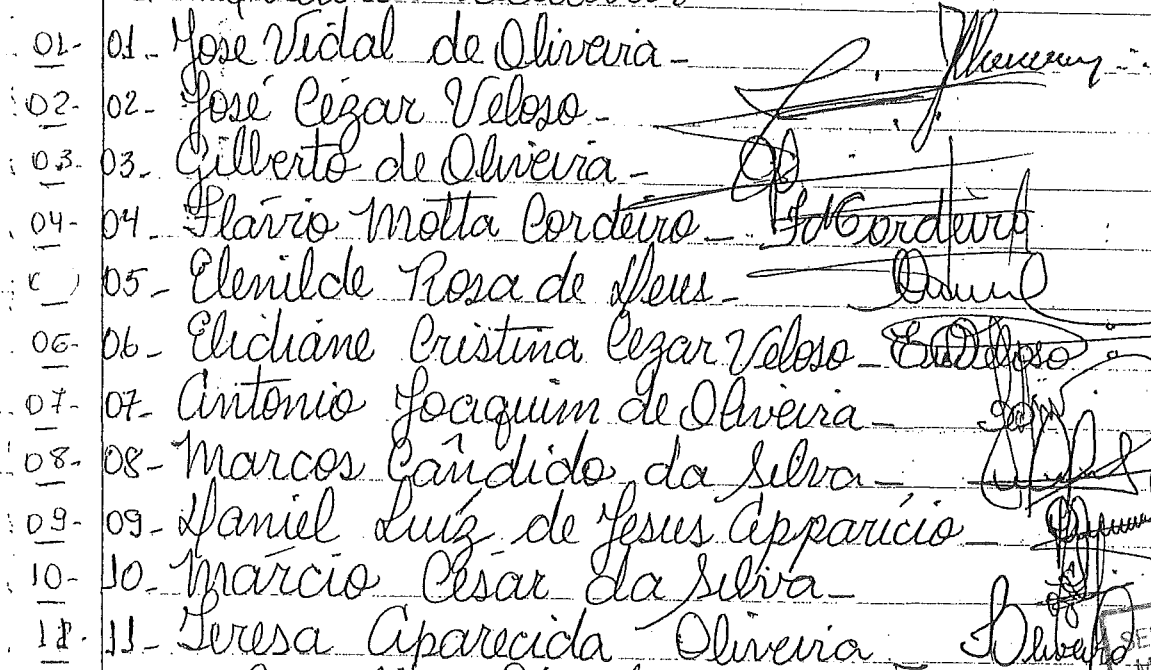 01- 01- Jose Vidal de Oliveira -
02- 02- José Cézar Veloso -
03- 03- Gilberto de Oliveira -
04- 04- Flávio Motta Cordeiro - FMCordeiro
05- Elenilde Rosa de Deus -
06- 06- Elidiane Cristina Cezar Veloso -
07- 07- Antonio Joaquim de Oliveira -
08- 08- Marcos Cândido da Silva -
09- 09- Daniel Luíz de Jesus Apparício -
10- 10- Márcio César da Silva -
11- 11- Teresa Aparecida Oliveira